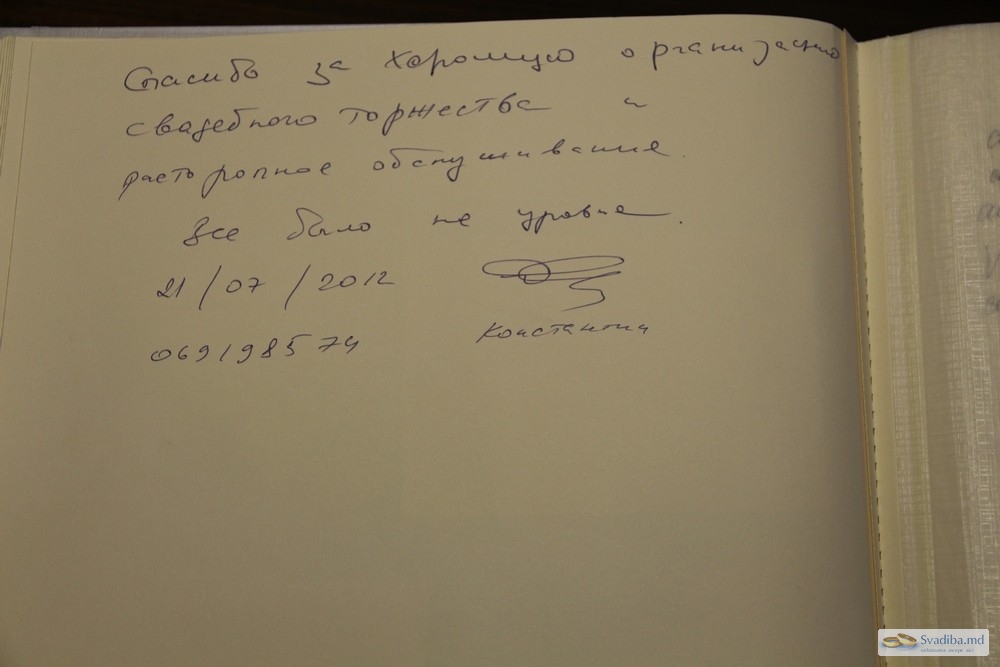 Спасибо за хорошую организацию
свадебного торжества и
расторопное обслуживание.
Все было на уровне.
21/07/2012
069198574
Константин
Svadiba.md